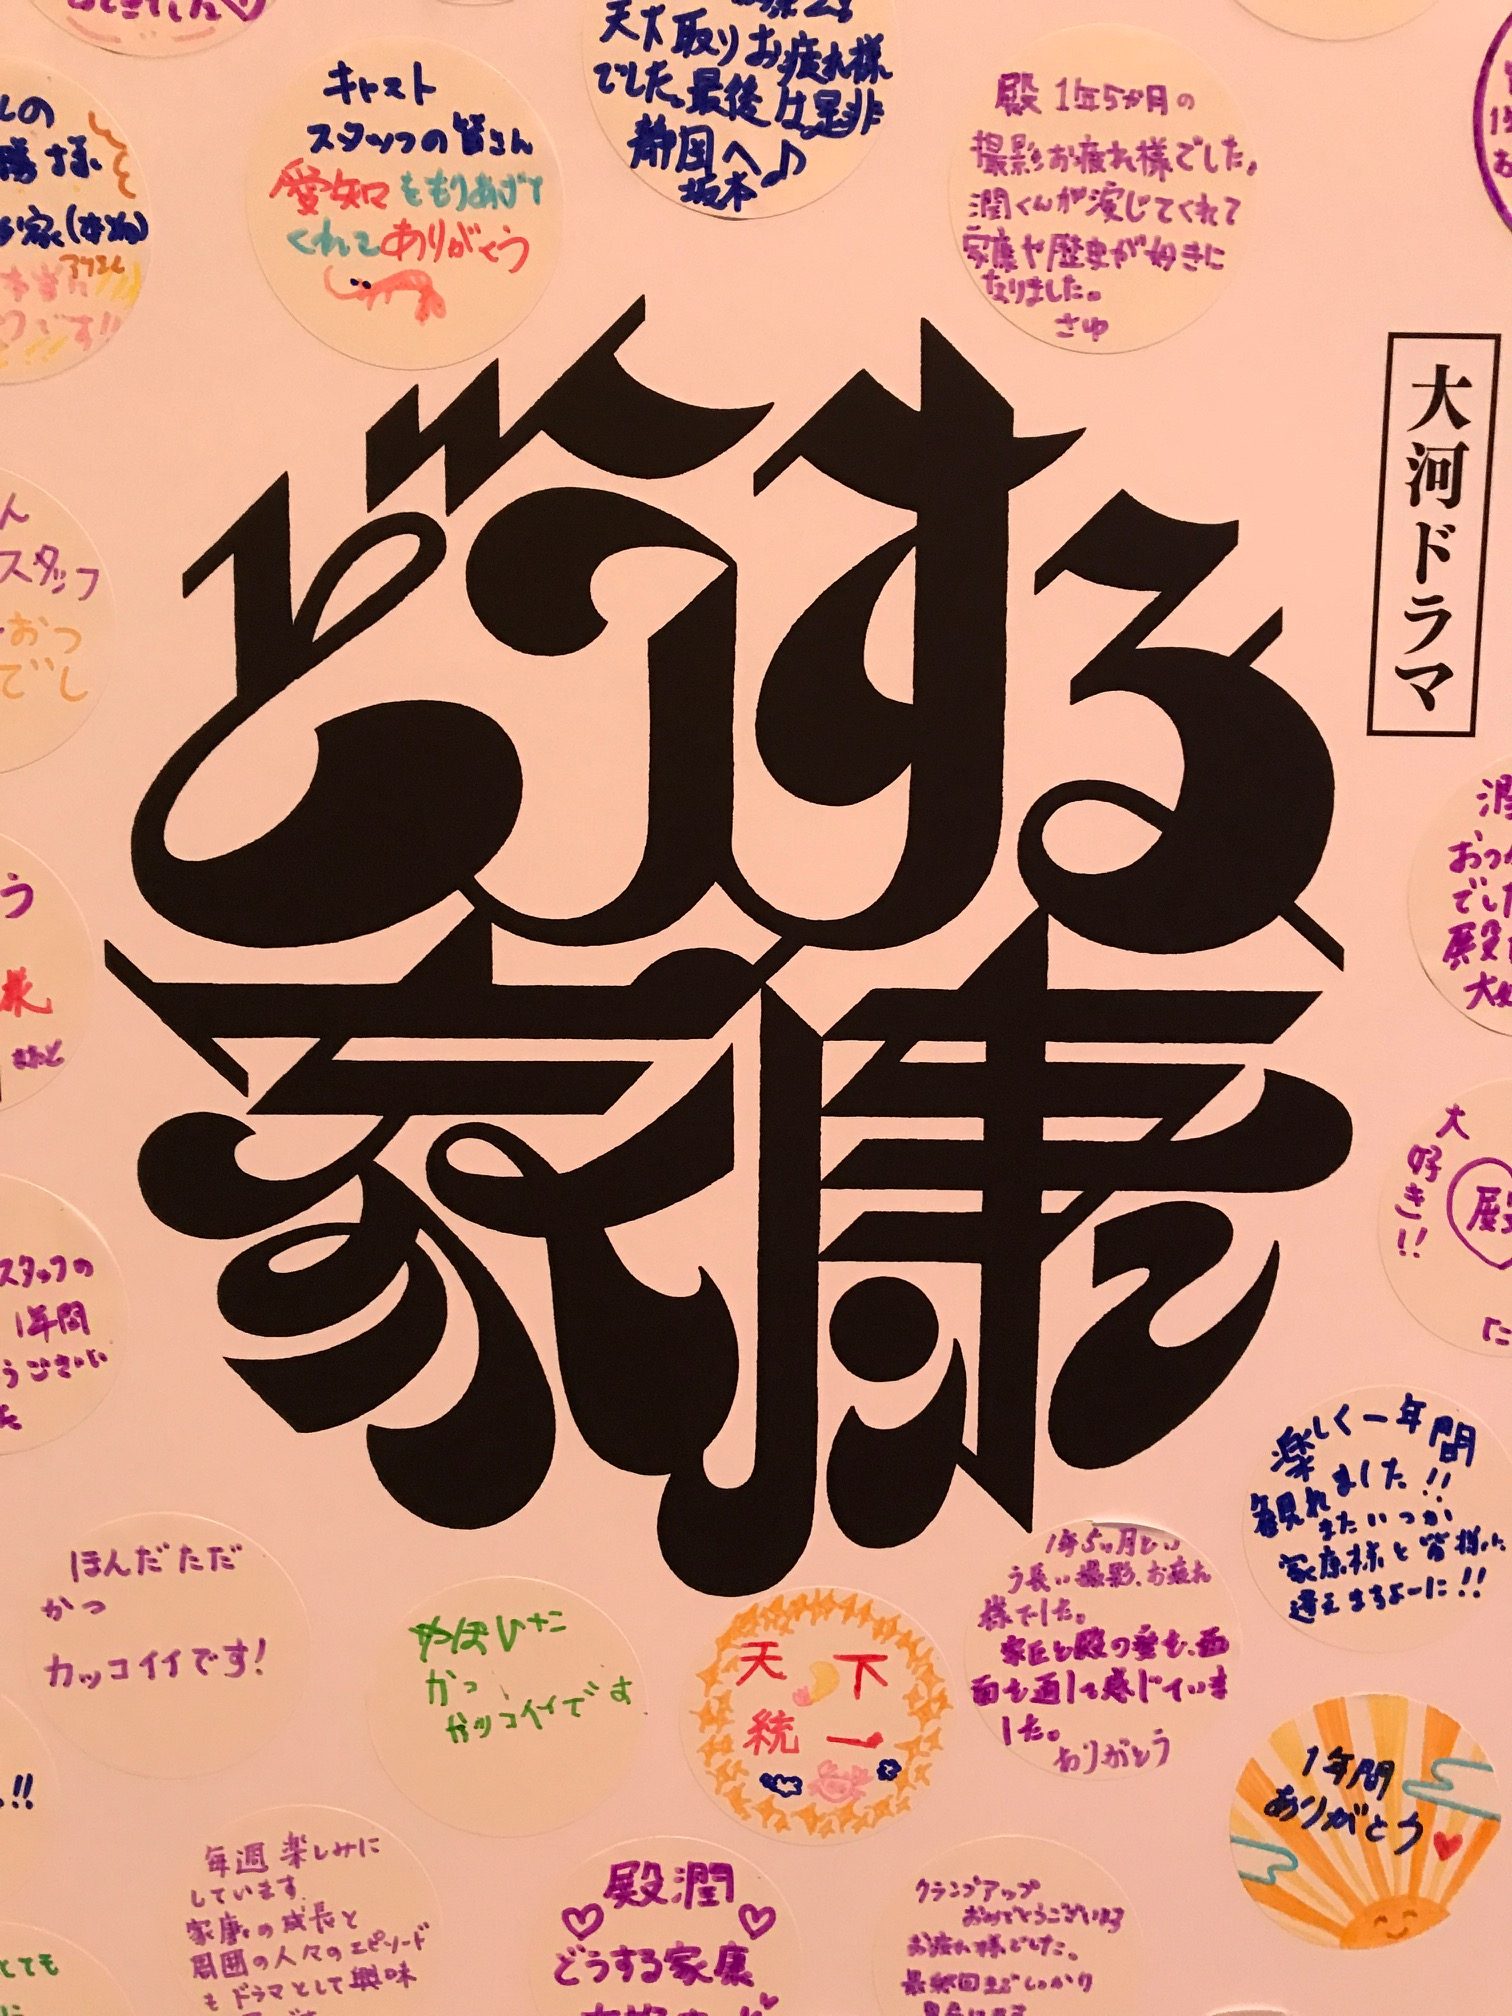 キャスト
スタッフの皆さん
愛知をもりあげて
くれてありがとう
天下取りお疲れ様
でした。最後は是非
静岡へ♪
坂本
殿 1年5か月の
撮影お疲れ様でした。
潤くんが演じてくれて
家康や歴史が好きに
なりました。
さゆ
大河ドラマ
どうする
家康
スタッフ
おつ
でし
スタッフの
1年間
うござい
おつ
でした
殿
大好き!!
殿
楽しく一年間
観れました!!
またいつか
家康様と皆様に
逢えますよーに!!
ほんだただ
かつ
カッコイイです!
やぼひこ
かっ
カッコイイです
天下
統一
1年5ヶ月とい
う長い撮影、お疲れ
様でした。
家臣と殿の愛を、画
面を通して感じていま
した。
ありがとう
1年間
ありがとう
毎週楽しみに
しています
家康の成長と
周囲の人々のエピソード
もドラマとして興味
殿潤
どうする家康
クランクアップ
おめでとうございます
お疲れ様でした。
最終回までしっかり
とても